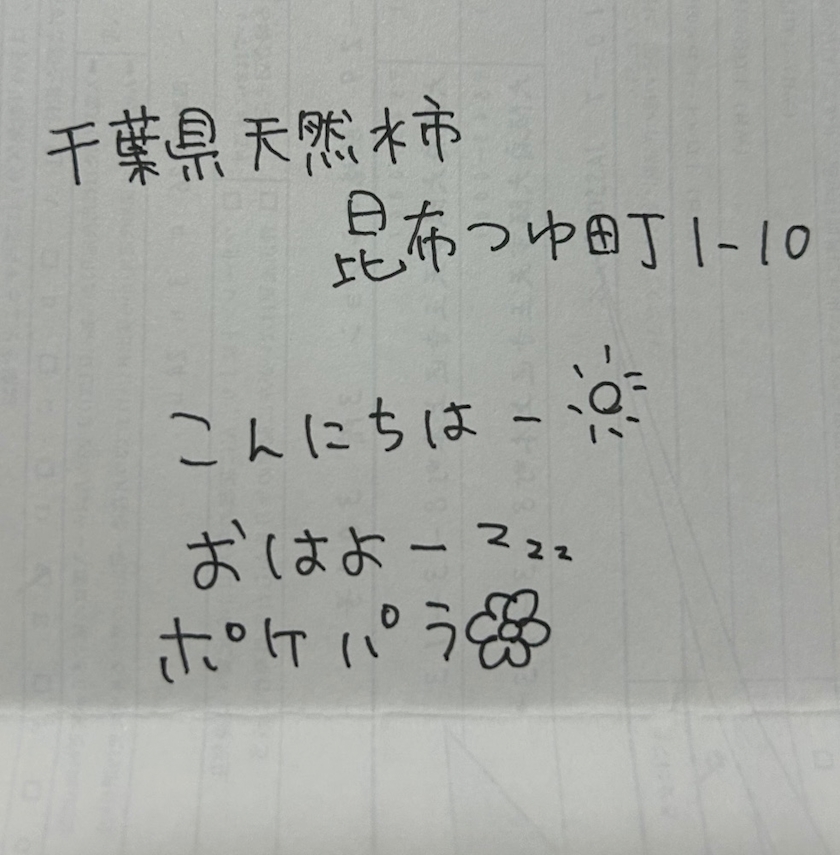 千葉県天然水市
昆布つゆ田丁1-10
こんにちはー
おはよーzzz
ポケパラ